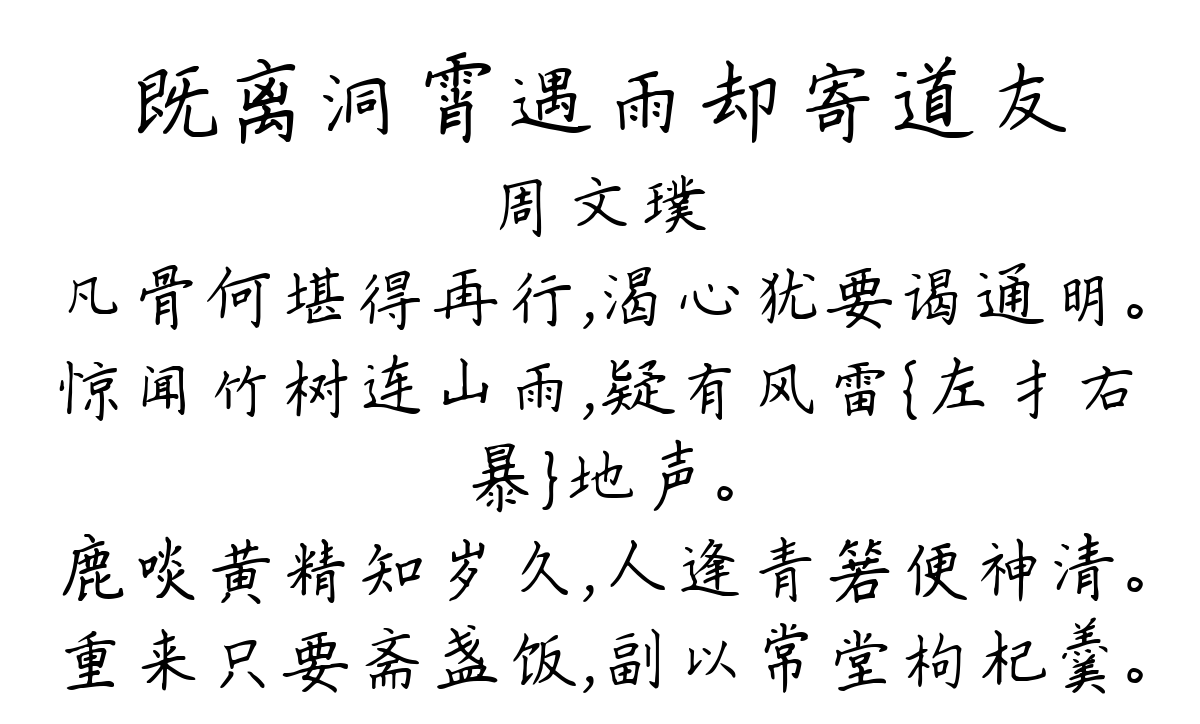 既离洞霄遇雨却寄道友
周文璞
凡骨何堪得再行,渴心犹要谒通明。
惊闻竹树连山雨,疑有风雷{左扌右
暴}地声。
鹿啖黄精知岁久,人逢青箬便神清。
重来只要斋盏饭,副以常堂枸杞羹。